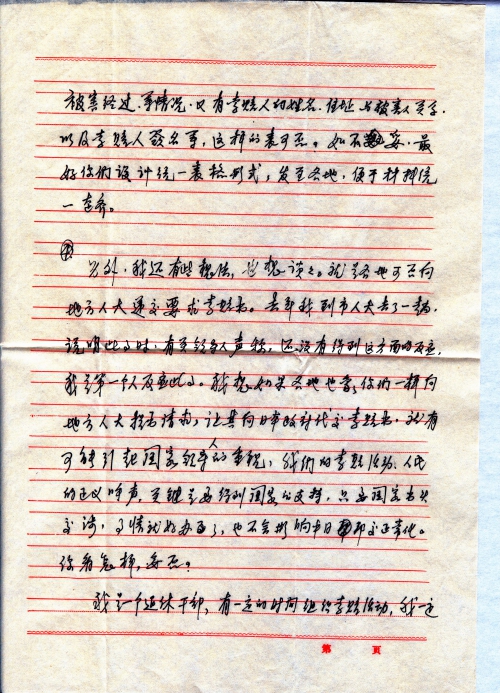 被害经过、等情况，又有索赔人的姓名、住址、与被害人关系，
以及索赔人签名等，这样的表可否。如不妥，最
好你们设计统一表格形式，发至各地，便于材料统
一齐。
④
另外，我还有些想法，也想谈谈。就是各地可否向
地方人大递交要求索赔书。去年我到市人大去了一趟，
说明此事时，有关领导人声称，还没有得到这方面的反应，
我是第一个人反应此事。我想如果各地也象你们一样向
地方人大提出请求，让其向日本政府代交索赔书，就有
可能引起国家领导人的重视，我们的索赔活动，人民
的正义呼声，关键是要得到国家的支持，只要国家出头
交涉，事情就好办了，也不会影响中日邦交正常化。
你看怎样，妥否？
我是一个退休干部，有一定的时间组织索赔活动，我一定
第 页